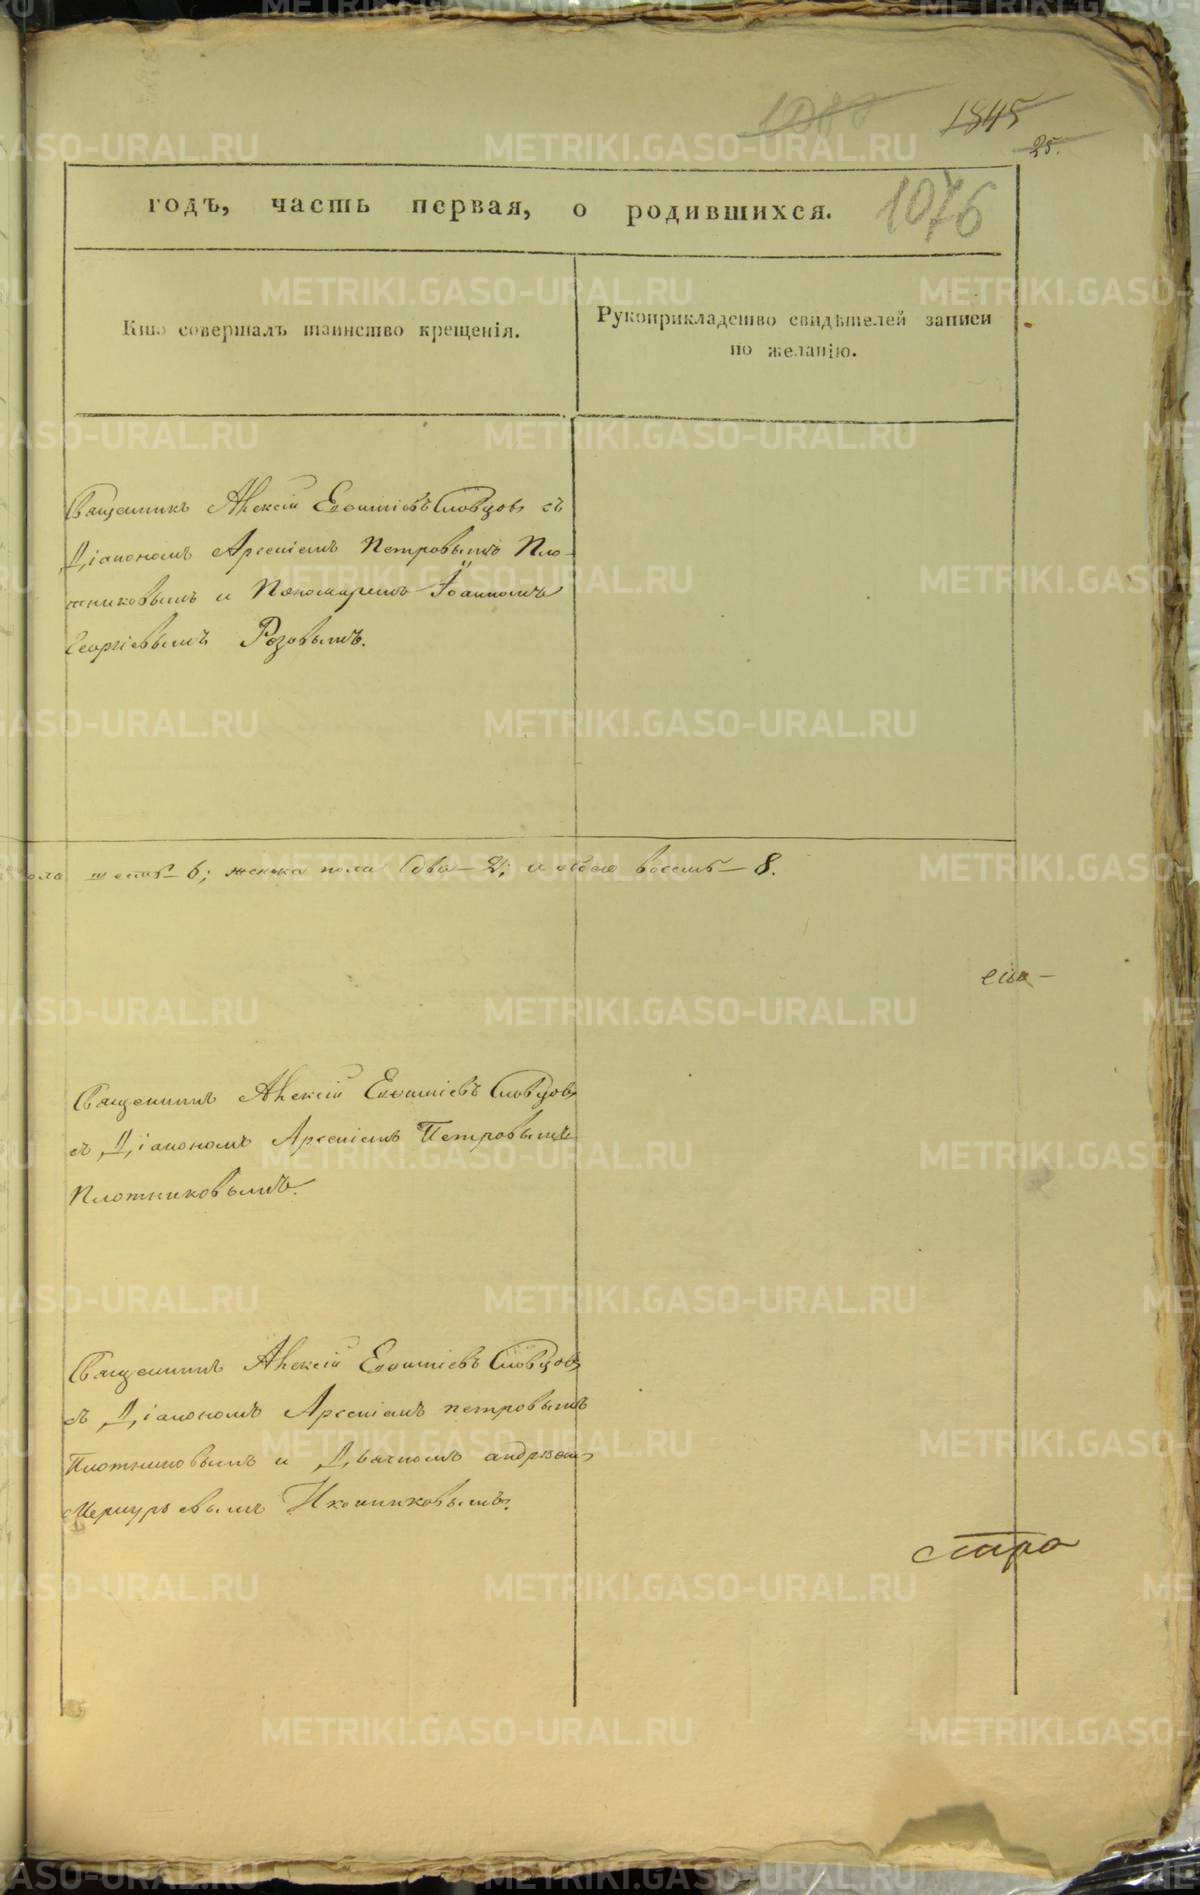 1845
25.
годъ, часть первая, о родившихся.
1076
Кто совершалъ таинство крещенія.
Рукоприкладство свидѣтелей записи
по желанію.
Священникъ Алексій Словцовъ съ
Діакономъ Арсеніемъ Петровымъ Пло-
тниковымъ и Пономаремъ Іоанномъ
Георгіевымъ Розовымъ.
пола шесть – 6; женска пола два – 2; и обоего восемь – 8.
Священникъ Алексій Словцовъ
съ Діакономъ Арсеніемъ Петровымъ
Плотниковымъ.
Священникъ Алексій Словцовъ
съ Діакономъ Арсеніемъ петровымъ
Плотниковымъ и Дьячкомъ андреемъ
Меркурьевымъ Иконниковымъ.
METRIKI.GASO-URAL.RU